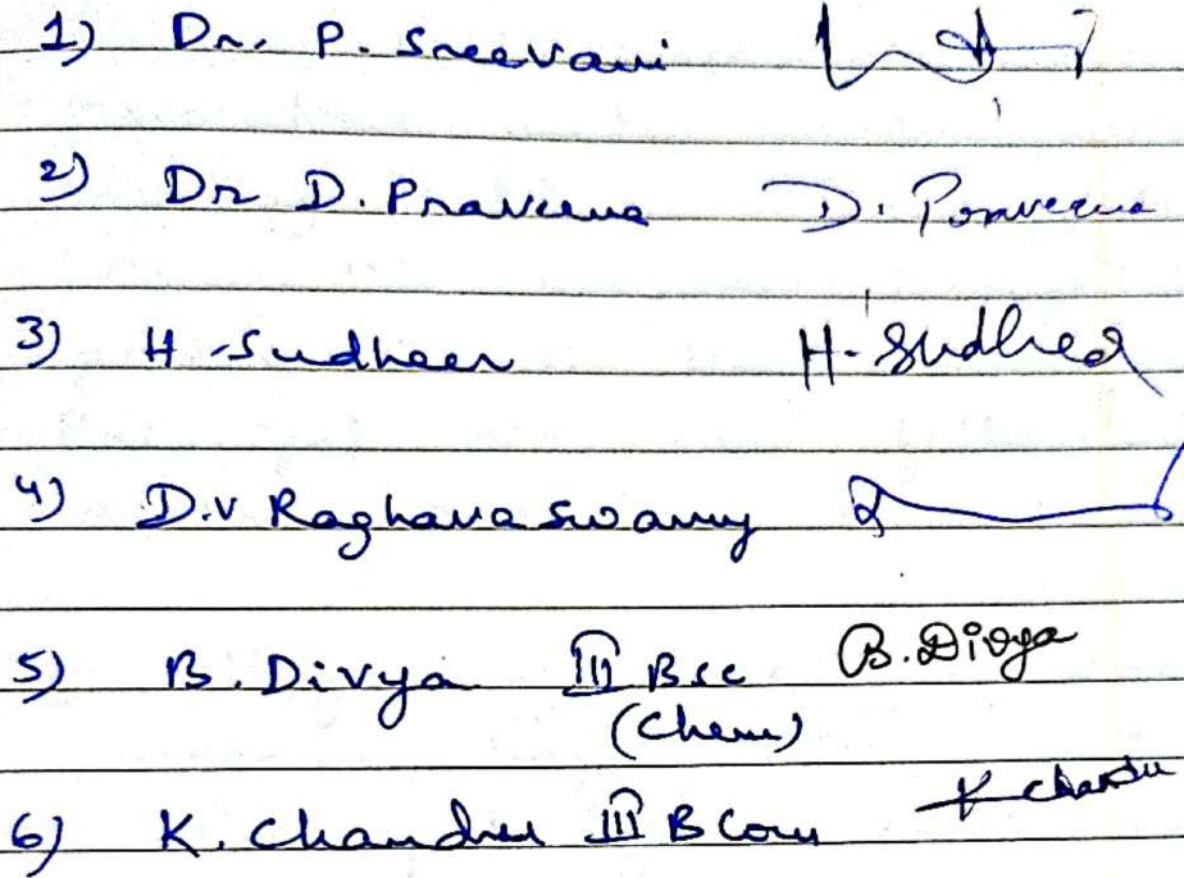 1) Dr. P. Sreevani
2) Dr D. Praveena D. Praveena
3) H. Sudheer H. Sudheer
4) D.V Raghava Swamy
5) B. Divya III Bsc B. Divya
(Chem)
6) K. Chandu III BCom K Chandu